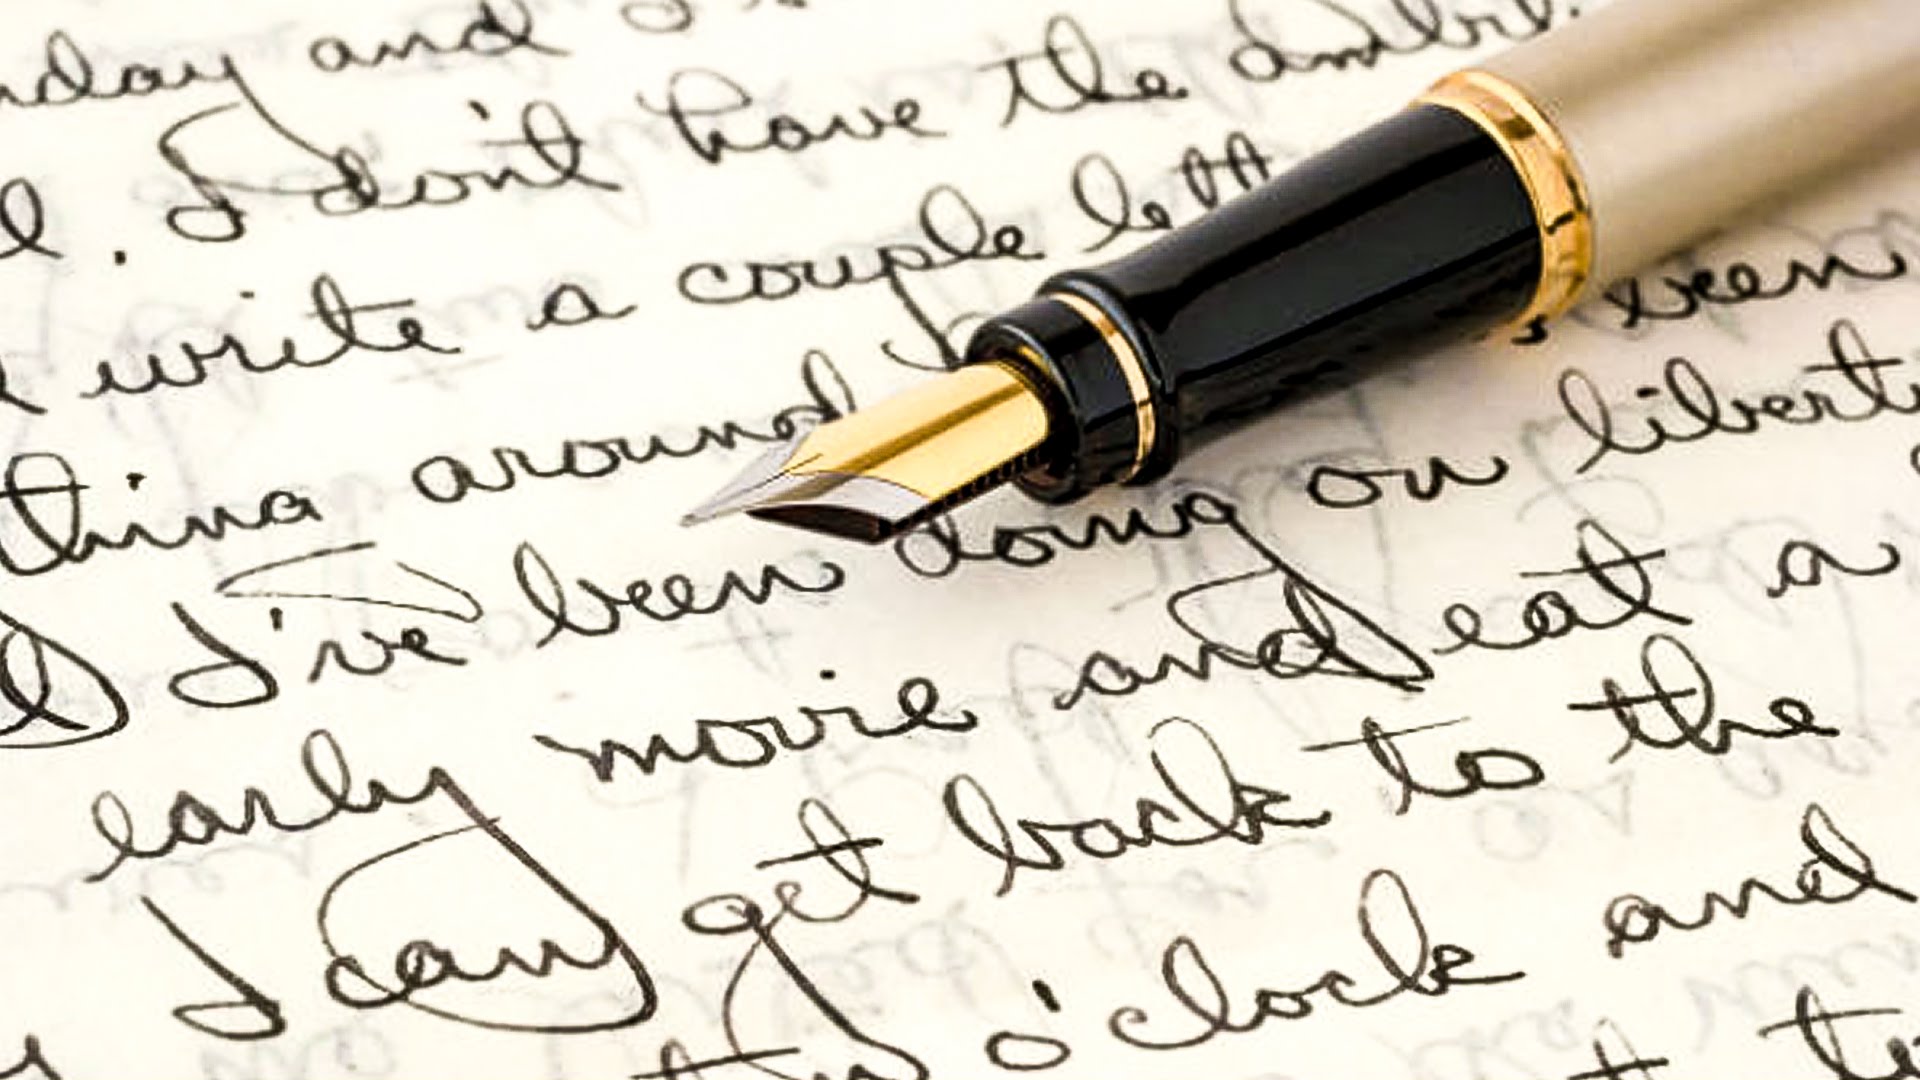 and
. I don't have the
write a couple
thing around
I've been doing on liberty
early movie and eat a
I can get back to the
o'clock and